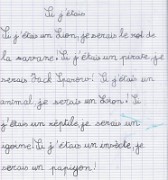 Si j'étais
Si j'étais un Lion, je serais le roi de
la savane. Si j'étais un pirate, je
serais Jack Sparow! Si j'étais un
animal, je serais un Lion! Si
j'étais un réptile, je serais un
igorne! Si j'étais un insècte, je
serais un papiyon!